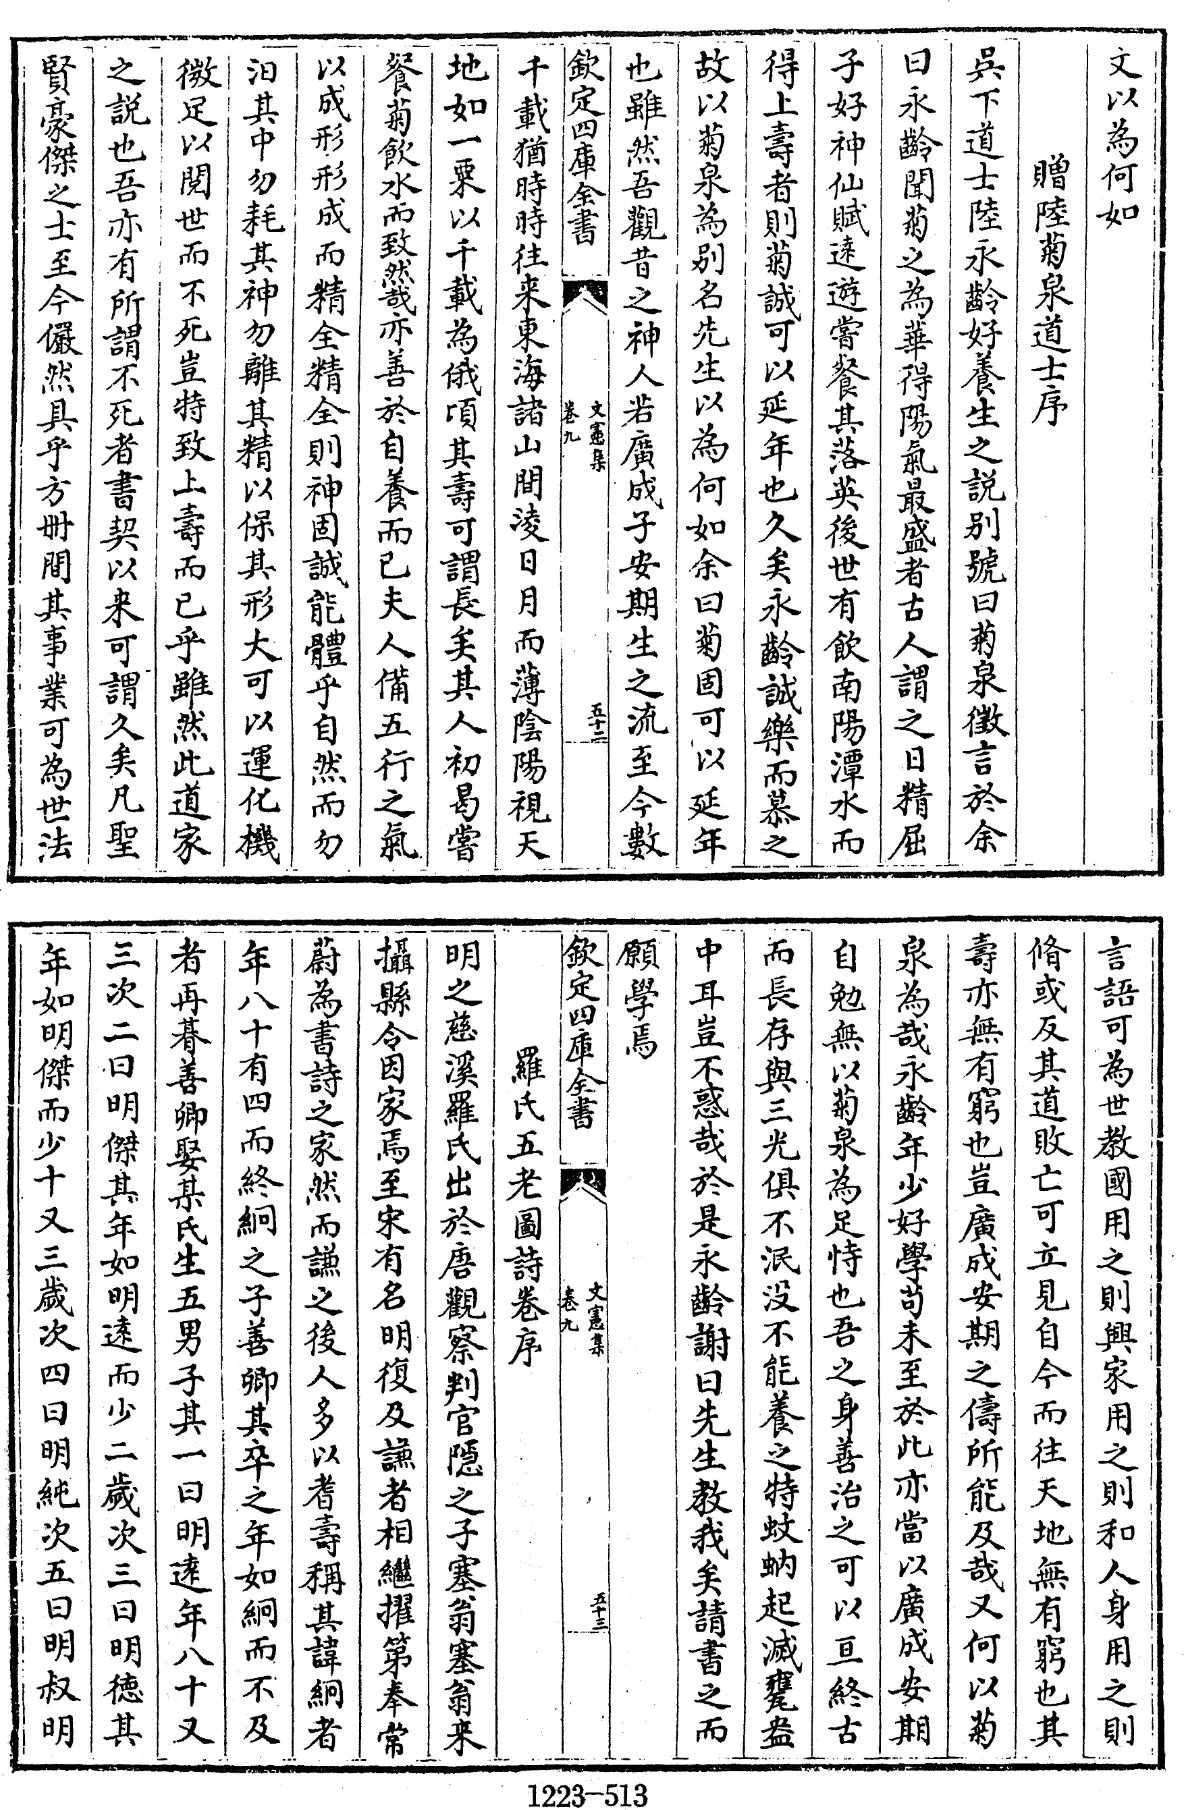 文以為何如
贈陸菊泉道士序
吳下道士陸永齡好養生之説别號曰菊泉徵言於余
曰永齡聞菊之為華得陽氣最盛者古人謂之日精屈
子好神仙賦逺遊嘗餐其落英後世有飲南陽潭水而
得上壽者則菊誠可以延年也久矣永齡誠樂而慕之
故以菊泉為别名先生以為何如余曰菊固可以延年
也雖然吾觀昔之神人若廣成子安期生之流至今數
欽定四庫全書
文憲集
卷九
五十二
千載猶時時往来東海諸山間淩日月而薄陰陽視天
地如一粟以千載為俄頃其壽可謂長矣其人初曷嘗
餐菊飲水而致然哉亦善於自養而已夫人備五行之氣
以成形形成而精全精全則神固誠能體乎自然而勿
汨其中勿耗其神勿離其精以保其形大可以運化機
微足以閲世而不死豈特致上壽而已乎雖然此道家
之説也吾亦有所謂不死者書契以来可謂久矣凡聖
賢豪傑之士至今儼然具乎方冊間其事業可為世法
言語可為世教國用之則興家用之則和人身用之則
脩或反其道敗亡可立見自今而往天地無有窮也其
壽亦無有窮也豈廣成安期之儔所能及哉又何以菊
泉為哉永齡年少好學茍未至於此亦當以廣成安期
自勉無以菊泉為足恃也吾之身善治之可以亘終古
而長存與三光俱不泯没不能養之特蚊蚋起滅甕盎
中耳豈不惑哉於是永齡謝曰先生教我矣請書之而
願學焉
欽定四庫全書
文憲集
卷九
五十三
羅氏五老圖詩卷序
明之慈溪羅氏出於唐觀察判官隱之子塞翁塞翁来
攝縣令因家焉至宋有名明復及謙者相繼擢第奉常
蔚為書詩之家然而謙之後人多以耆壽稱其諱絅者
年八十有四而終絅之子善卿其卒之年如絅而不及
者再朞善卿娶某氏生五男子其一曰明逺年八十又
三次二曰明傑其年如明逺而少二歲次三曰明德其
年如明傑而少十又三歲次四曰明純次五曰明叔明
1223-513